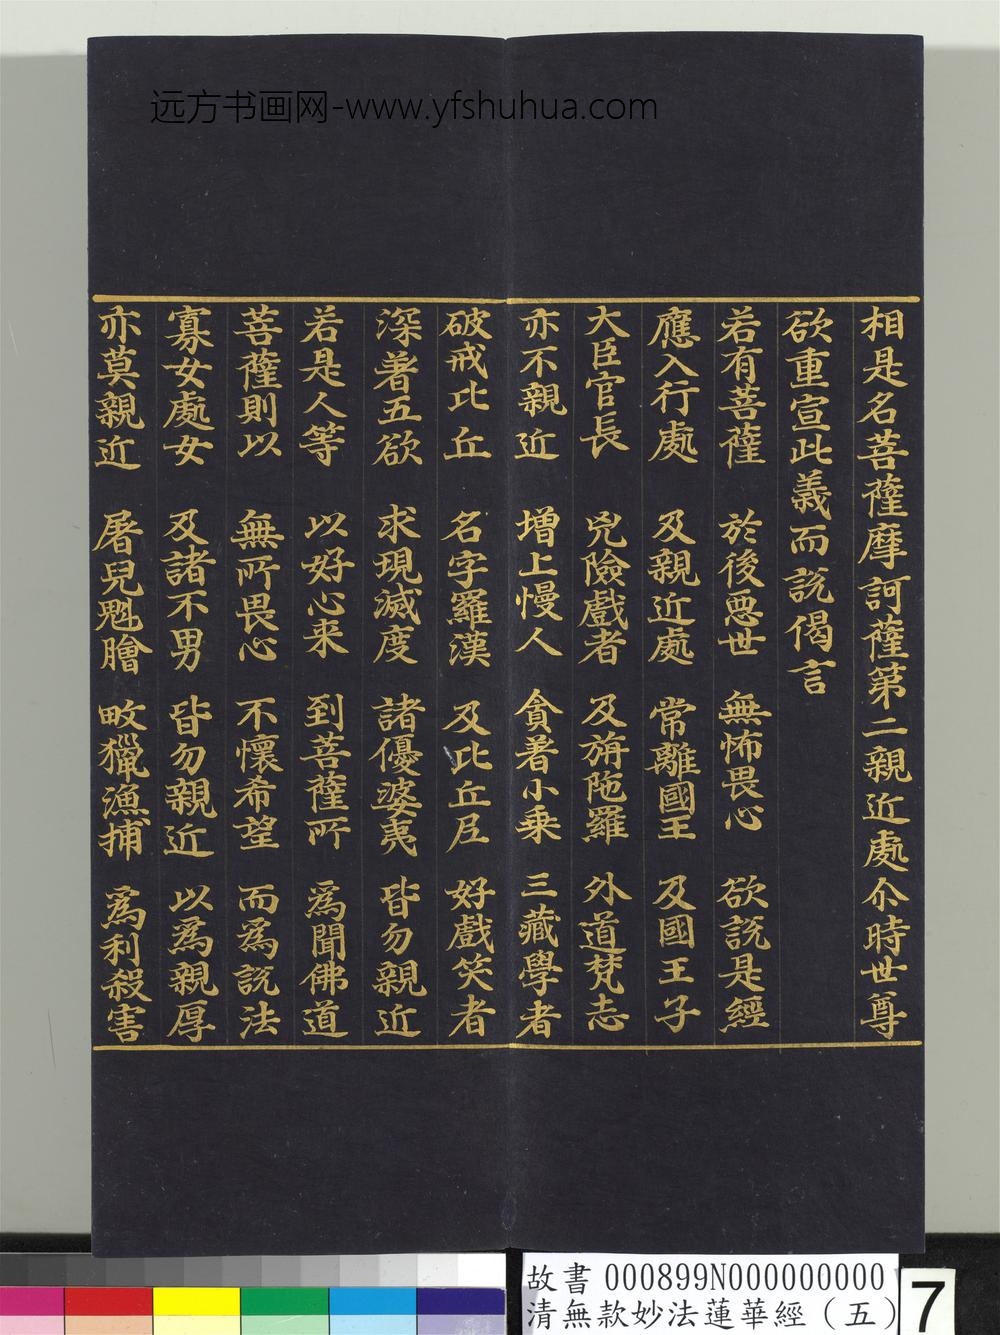 远方书画网-www.yfshuhua.com
相是名菩薩摩訶薩第二親近處尒時世尊
欲重宣此義而說偈言
若有菩薩 於後惡世 無怖畏心 欲說是經
應入行處 及親近處 常離國王 及國王子
大臣官長 兇險戲者 及旃陁羅 外道梵志
亦不親近 增上慢人 貪著小乘 三藏學者
破戒比丘 名字羅漢 及比丘尼 好戲笑者
深著五欲 求現滅度 諸優婆夷 皆勿親近
若是人等 以好心来 到菩薩所 為聞佛道
菩薩則以 無所畏心 不懷希望 而為說法
寡女處女 及諸不男 皆勿親近 以為親厚
亦莫親近 屠兒魁膾 畋獵漁捕 為利殺害
故書 000899N000000000
清無款妙法蓮華經（五）
7